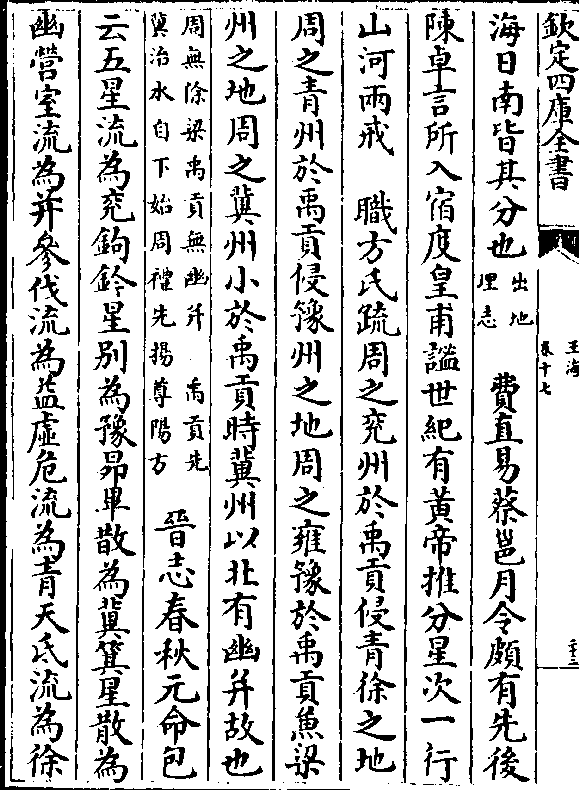 欽定四庫全書
玉海
卷十七
海日南皆其分也出地理志　費直易蔡邕月令頗有先後
陳卓言所入宿度皇甫謐世紀有黄帝推分星次一行
山河兩戒　職方氏疏周之兖州於禹貢侵青徐之地
周之青州於禹貢侵豫州之地周之雍豫於禹貢兼梁
州之地周之冀州小於禹貢時冀州以北有幽并故也
周無徐梁禹貢無幽并　禹貢先
冀治水自下始周禮先揚尊陽方　晉志春秋元命包
云五星流為兖鉤鈐星別為豫昴畢散為冀箕星散為
幽營室流為并參伐流為益虛危流為青天氐流為徐